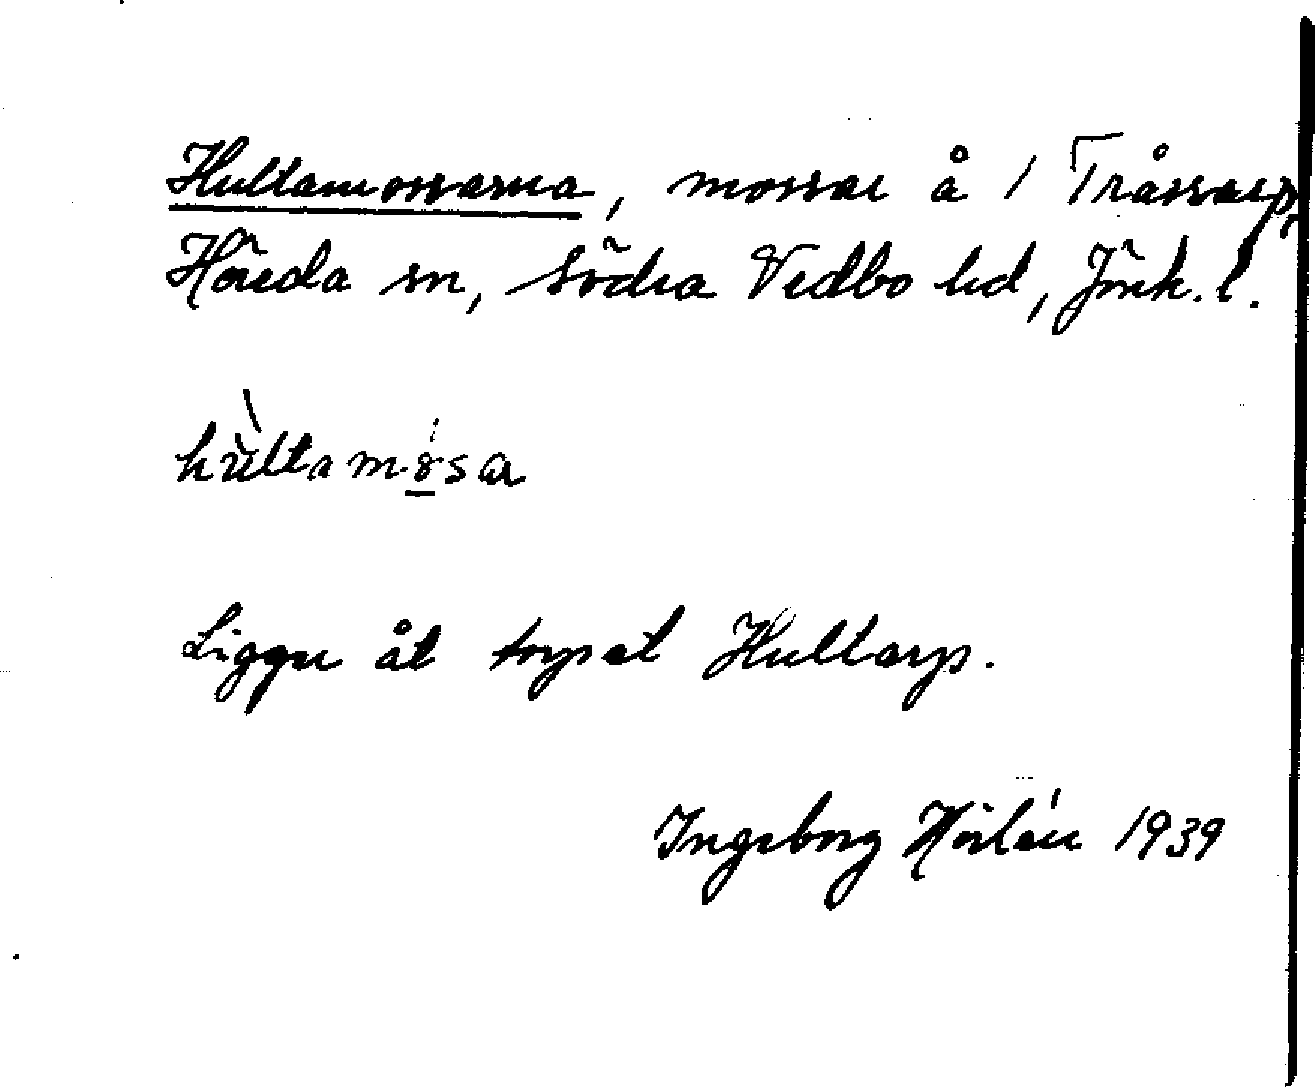 Hultamossarna, mossar å 1 Tråssarp,
Höreda sn, Södra Vedbo hd, Jönk. l.
hùltamósa
Ligger åt torpet Hultarp.
Ingeborg Hörlén 1939